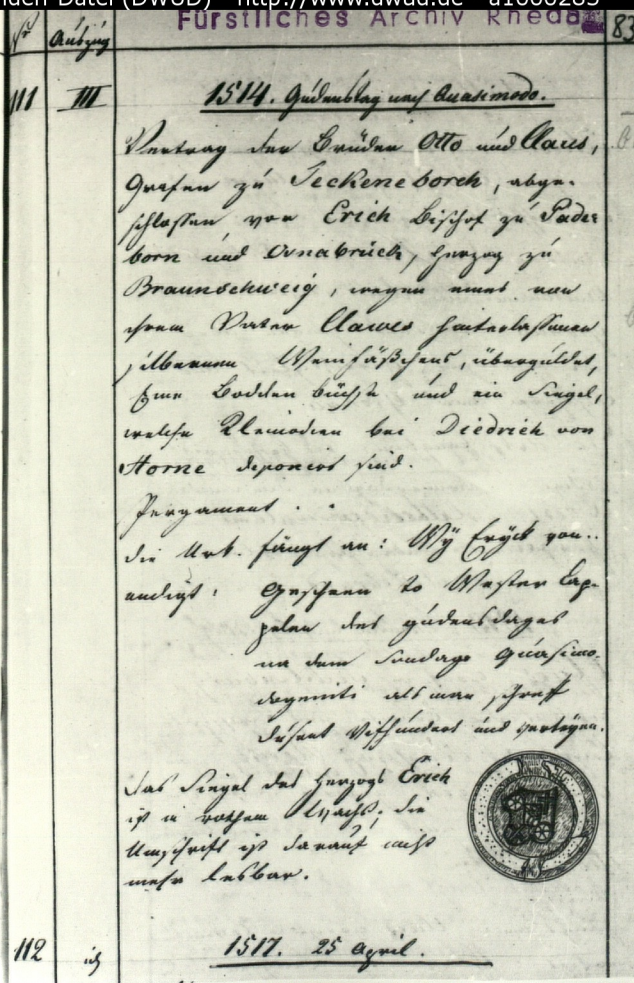 nden-Datei (DWUD) - http://www.dwud.de - a1000283
Fürstliches Archiv Rheda
Nr Auszug 83
111 III 1514. Gudenstag nach Quasimodo.
Vertrag der Brüder Otto und Claus,
Grafen zu Teckeneborch, abge-
schlossen von Erich Bischof zu Pader
born und Osnabrück, Herzog zu
Braunschweig, wegen eines von
ihrem Vater Clawes hinterlassenen
silbernen Weinfäßchens, überguldet,
Eine Bodden büchse und ein Siegel,
welche Kleinodien bei Diedrich von
Horne deponirt sind.
Pergament.
die Urk. fängt an: Wÿ Erÿck von..
endigt: Gescheen to Wester Cap-
pelen des gudensdages
na dem Sondage Quasimo-
dogeniti als man schreff
dusent Vifhundert und verteyen.
Das Siegel des Herzogs Erich
ist in rothem Wachs; die
Umschrift ist darauf nicht
mehr lesbar.
112 1517. 25 April.